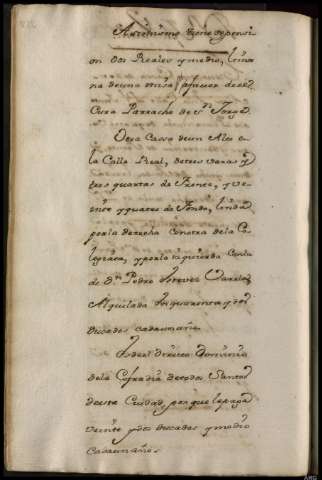 Asimismo tiene depensi
on dos Reales y medio, limos
na de una misa afavor del
Cura Parracho de Sn. Jorge
Otra Cassa de un Alto à
la Calle Real, de tres varas y
tres quartas de Frente, y ve
inte y quatro de Fondo, linda
por la derecha con otra de la Co
legiata, y por la izquierda Conla
de Dn. Pedro Estevez Varela,
Alquilada en quarenta y dos
ducados cada un año
Es del directo Dominio
dela Cofradia de todos Santos
de esta Ciudad, por que le paga
veinte y dos ducados y medio
cada un año.